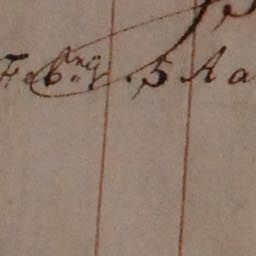 Febry 5 Aa